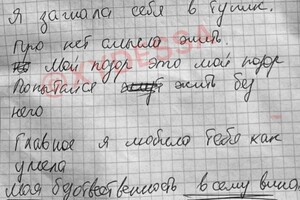 Я загнала себя в тупик.
Про нет смысла жить.
Мой позор это мой позор
Попытайся жить без
него
Главное я любила тебя как
умела
Моя безответственность всему виной.